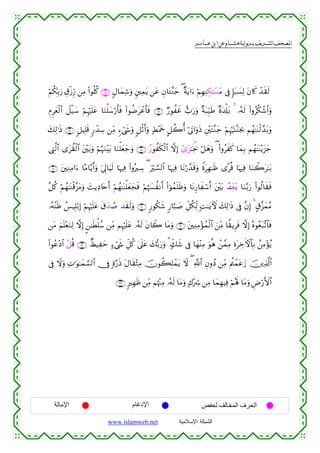 المصحف الشريف برواية هشام عن ابن عامر
لَقَدْ كَانَ لِسَبَإٍ فِى مَسَٰكِنِهِمْ ءَايَةٌ جَنَّتَانِ عَن يَمِينٍ وَشِمَالٍ كُلُوا۟ مِن رِّزْقِ رَبِّكُمْ
وَٱشْكُرُوا۟ لَهُۥ بَلْدَةٌ طَيِّبَةٌ وَرَبٌّ غَفُورٌ فَأَعْرَضُوا۟ فَأَرْسَلْنَا عَلَيْهِمْ سَيْلَ ٱلْعَرِمِ
وَبَدَّلْنَٰهُم بِجَنَّتَيْهِمْ جَنَّتَيْنِ ذَوَاتَىْ أُكُلٍ خَمْطٍ وَأَثْلٍ وَشَىْءٍ مِّن سِدْرٍ قَلِيلٍ ذَٰلِكَ
جَزَيْنَٰهُم بِمَا كَفَرُوا۟ وَهَلْ يُجَٰزَىٰ إِلَّا ٱلْكَفُورُ وَجَعَلْنَا بَيْنَهُمْ وَبَيْنَ ٱلْقُرَى ٱلَّتِى
بَٰرَكْنَا فِيهَا قُرًى ظَٰهِرَةً وَقَدَّرْنَا فِيهَا ٱلسَّيْرَ سِيرُوا۟ فِيهَا لَيَالِىَ وَأَيَّامًا ءَامِنِينَ
فَقَالُوا۟ رَبَّنَا بَعِّدْ بَيْنَ أَسْفَارِنَا وَظَلَمُوٓا۟ أَنفُسَهُمْ فَجَعَلْنَٰهُمْ أَحَادِيثَ وَمَزَّقْنَٰهُمْ كُلَّ
مُمَزَّقٍ إِنَّ فِى ذَٰلِكَ لَءَايَٰتٍ لِّكُلِّ صَبَّارٍ شَكُورٍ وَلَقَد صَدَقَ عَلَيْهِمْ إِبْلِيسُ ظَنَّهُۥ
فَٱتَّبَعُوهُ إِلَّا فَرِيقًا مِّنَ ٱلْمُؤْمِنِينَ وَمَا كَانَ لَهُۥ عَلَيْهِم مِّن سُلْطَٰنٍ إِلَّا لِنَعْلَمَ مَن
يُؤْمِنُ بِٱلْءَاخِرَةِ مِمَّنْ هُوَ مِنْهَا فِى شَكٍّ وَرَبُّكَ عَلَىٰ كُلِّ شَىْءٍ حَفِيظٌ قُلُ ٱدْعُوا۟
ٱلَّذِينَ زَعَمْتُم مِّن دُونِ ٱللَّهِ لَا يَمْلِكُونَ مِثْقَالَ ذَرَّةٍ فِى ٱلسَّمَٰوَٰتِ وَلَا فِى
ٱلْأَرْضِ وَمَا لَهُمْ فِيهِمَا مِن شِرْكٍ وَمَا لَهُۥ مِنْهُم مِّن ظَهِيرٍ
الحرف المخالف لحفص الإدغام الإمالة
www.islamweb.net الشبكة الإسلامية